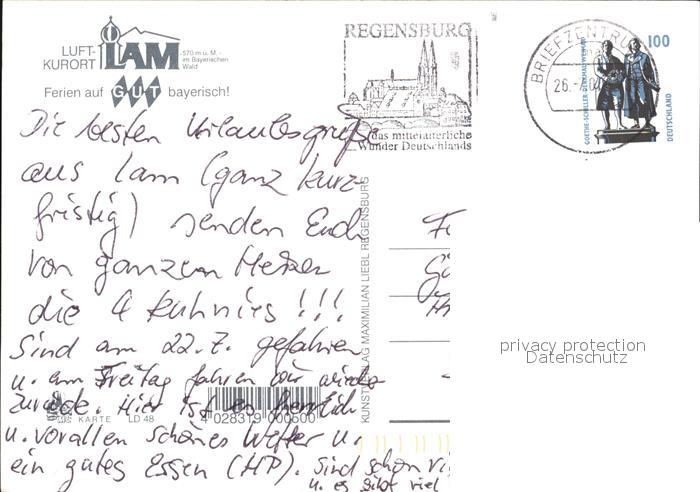 LUFT-
KURORT LAM 570 m ü. M. -
im Bayerischen
Wald
Ferien auf GUT bayerisch!
REGENSBURG
das mittelalterliche
Wunder Deutschlands
BRIEFZENTRUM
26.-
100
GOETHE-SCHILLER-DENKMAL WEIMAR
DEUTSCHLAND
Die besten Urlaubsgrüße
aus Lam (ganz kurz-
fristig) senden Euch
von ganzem Herzen
die 4 Kuhnies!!!
Sind am 22.7. gefahren
u. am Freitag fahren wir wieder
zurück. Hier ist es herrlich
u. vorallen schönes Wetter u.
ein gutes Essen (HP). Sind schon vi
u. es gibt viel
KUNSTVERLAG MAXIMILIAN LIEBL REGENSBURG
KARTE LD 48
4 028319 000600
privacy protection
Datenschutz